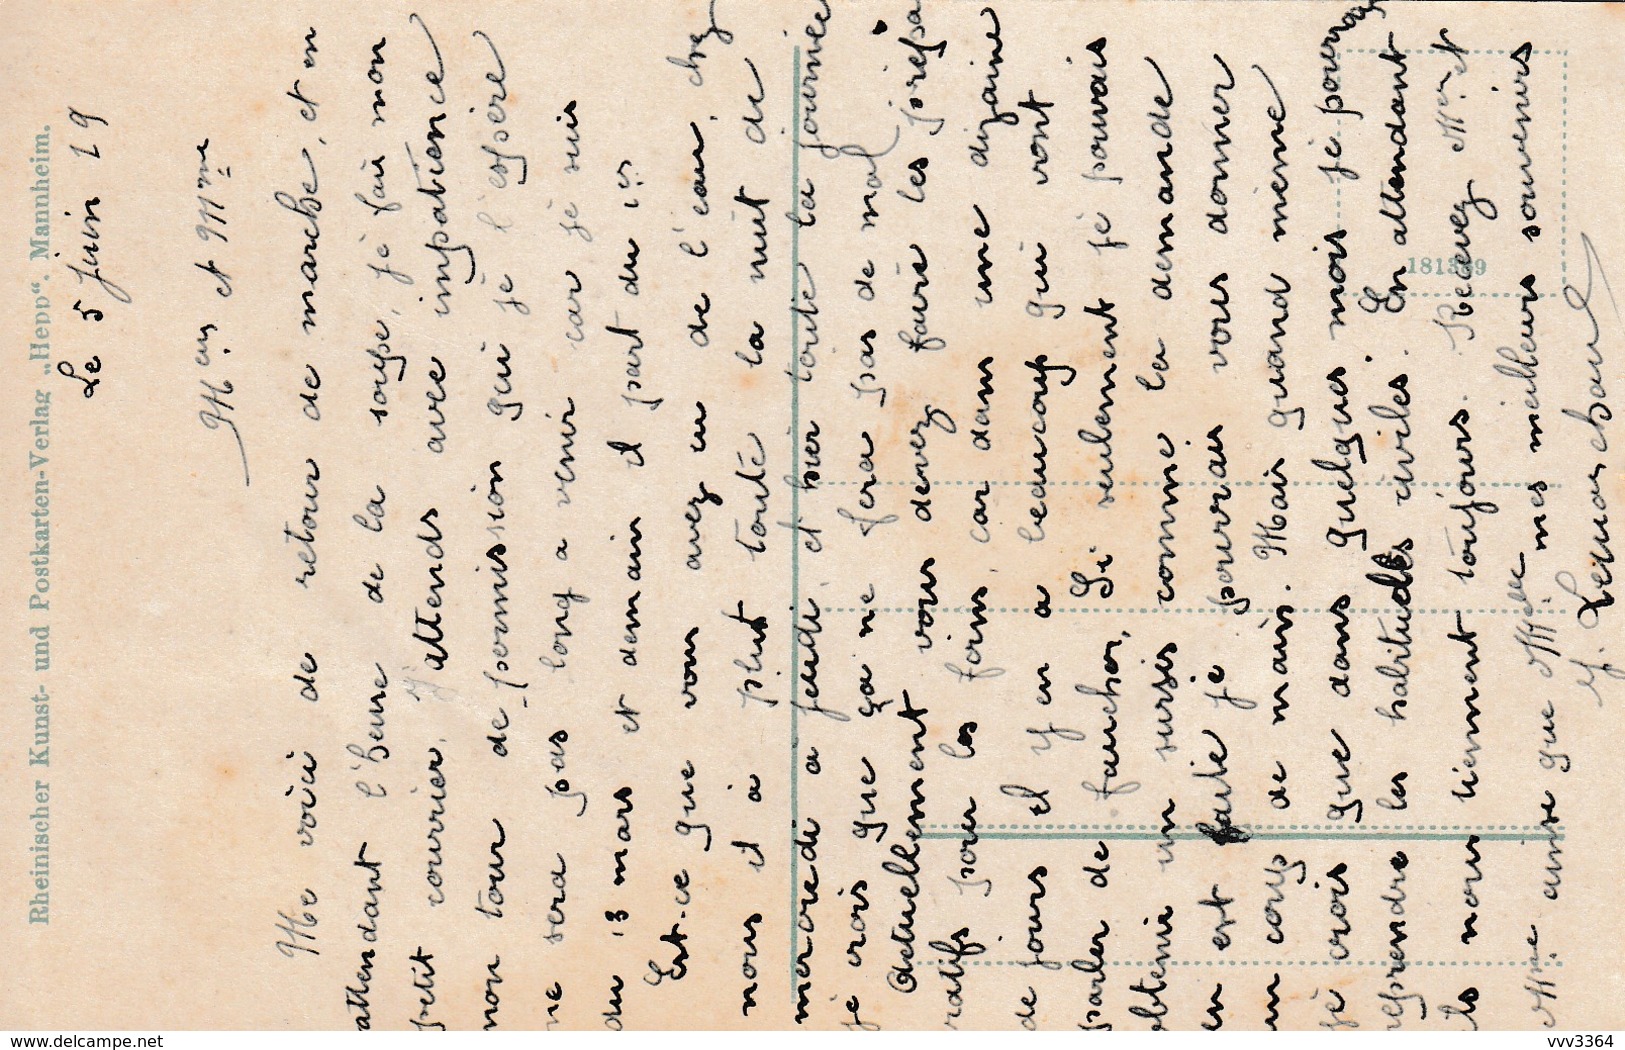 Rheinischer Kunst- und Postkarten-Verlag „Hepp“. Mannheim.
Le 5 Juin 19
et Mme
Me voici de retour de marche, et en
attendant l'heure de la soupe, je fais mon
petit courrier. J'attends avec impatience
mon tour de permission qui je l'espère
ne sera pas long a venir car je suis
du 13 mars et demain il part du 1er
Est-ce que vous avez eu de l'eau, chez
nous il à plut toute la nuit de
mercredi à jeudi, et hier toute la journée
je crois que ça ne fera pas de mal
Actuellement vous devez faire les prépa
ratifs pour les foins, car dans une dizaine
de jours il y en a beaucoup qui vont
parler de faucher, Si seulement je pouvais
obtenir un sursis comme la demande
en est faite je pourrai vous donner
un coup de main. Mais quand même
je crois que dans quelques mois je pourrai
reprendre les habitudes civiles. En attendant
ils nous tiennent toujours. Recevez Mr et
Mme ainsi que Melle mes meilleurs souvenirs
181389